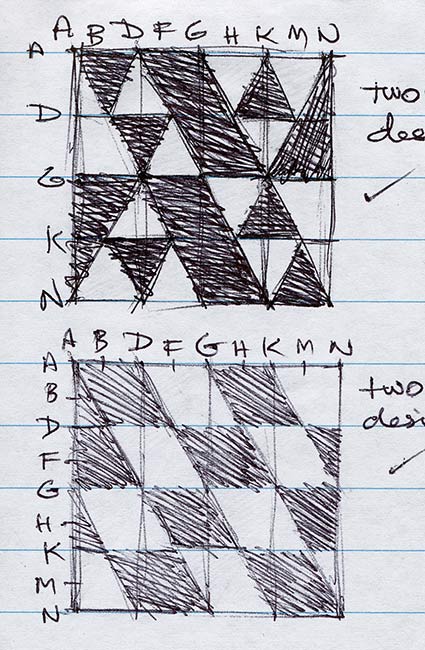 A B D F G H K M N
A
two
D
des
G
✓
K
N
A B D F G H K M N
A
two
B
desi
D
F
✓
G
H
K
M
N